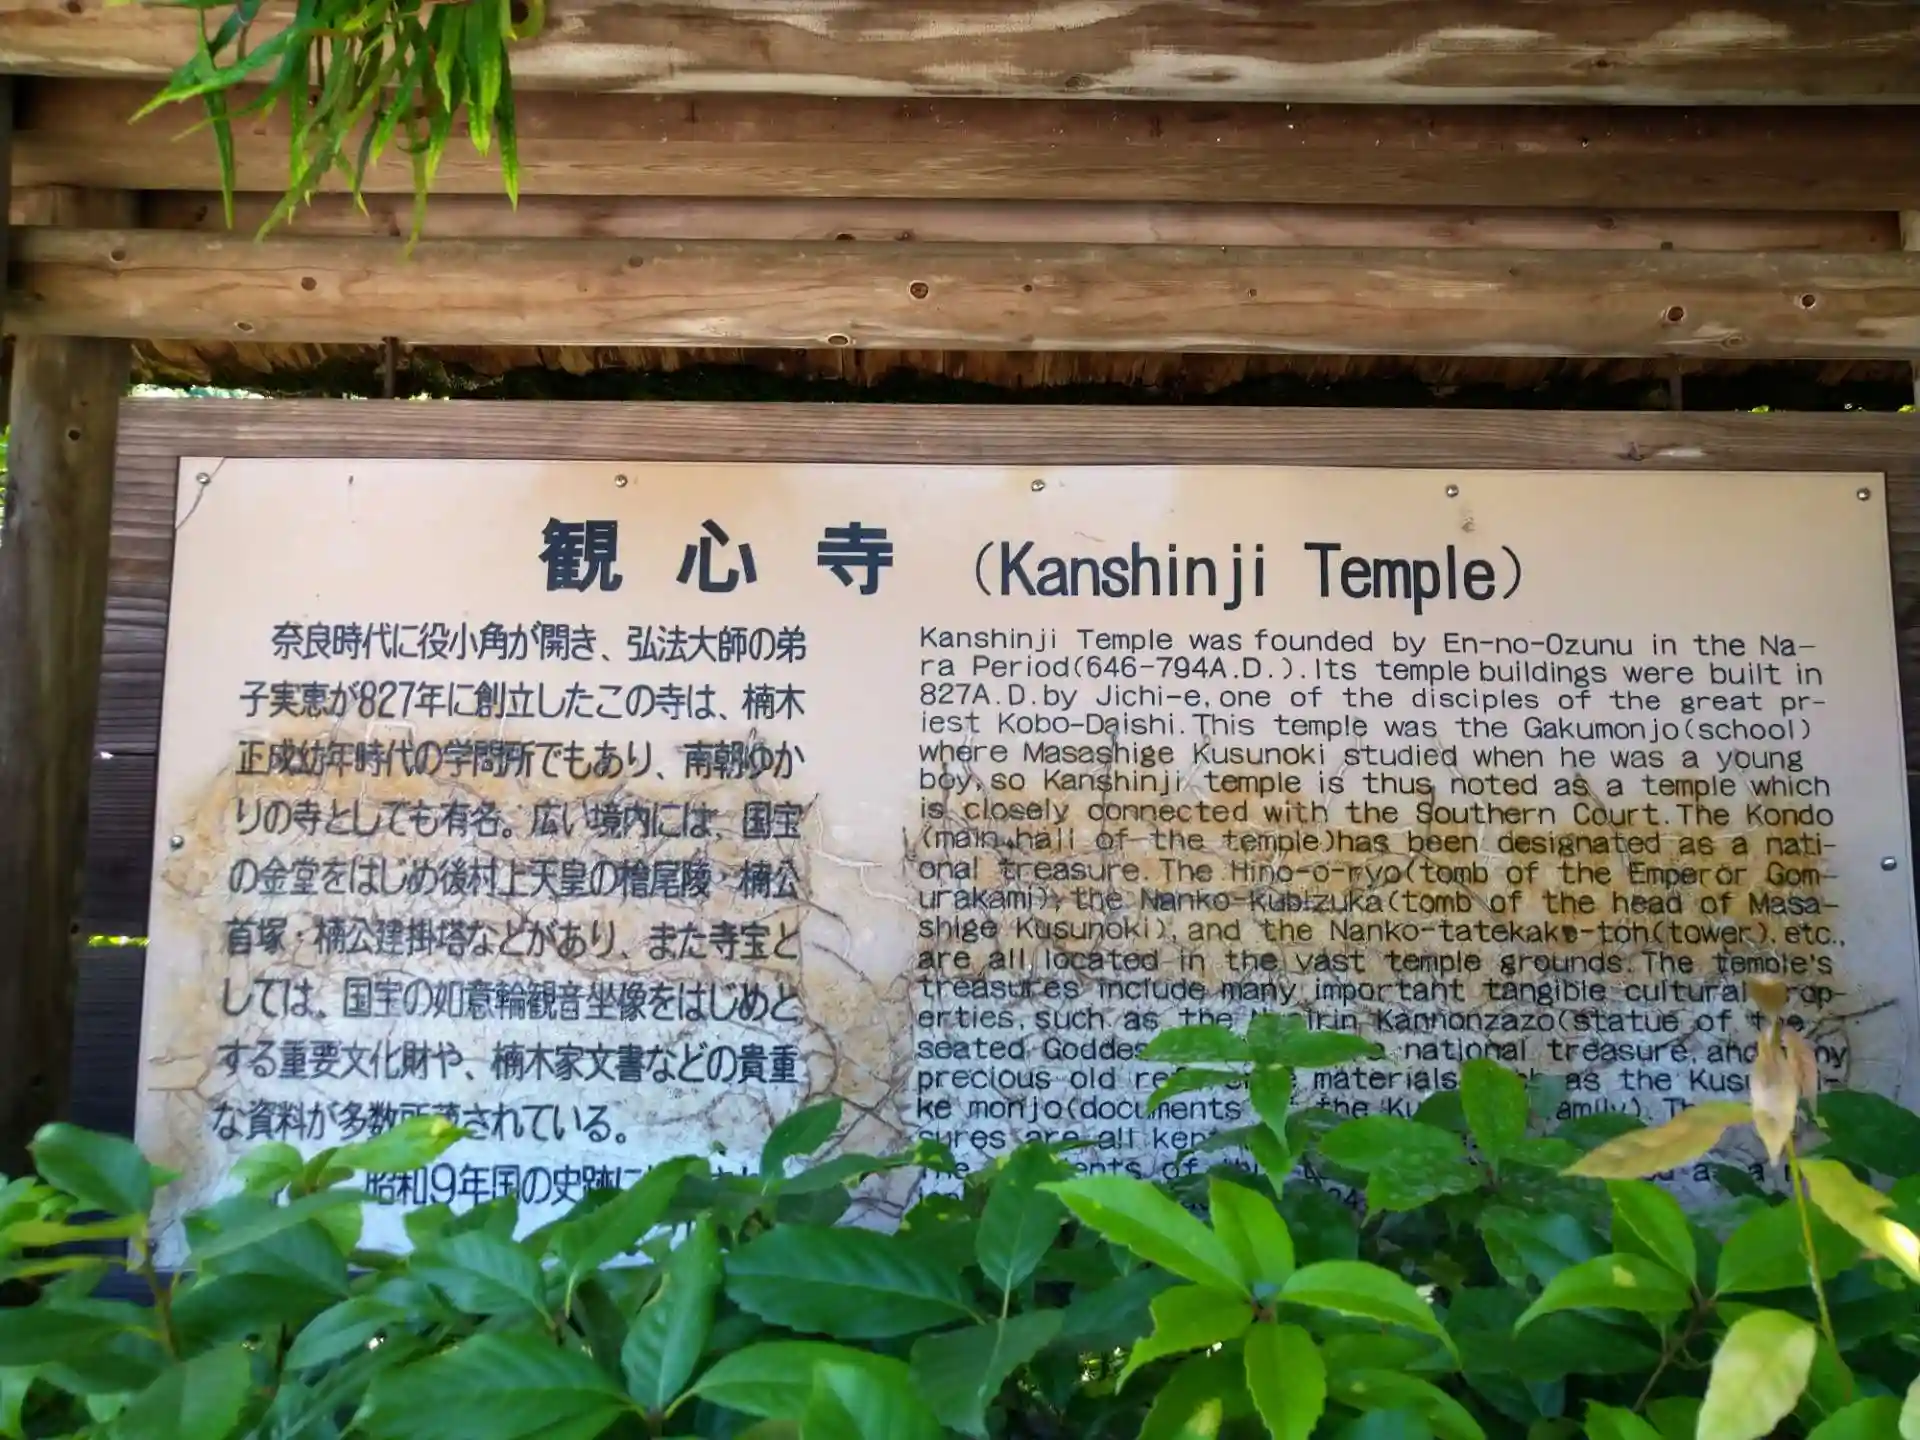 観心寺 (Kanshinji Temple)
奈良時代に役小角が開き、弘法大師の弟
子実恵が827年に創立したこの寺は、楠木
正成幼年時代の学問所でもあり、南朝ゆか
りの寺としても有名。広い境内には、国宝
の金堂をはじめ後村上天皇の檜尾陵・楠公
首塚・楠公建掛塔などがあり、また寺宝と
しては、国宝の如意輪観音坐像をはじめと
する重要文化財や、楠木家文書などの貴重
な資料が多数所蔵されている。
昭和9年国の史跡に
Kanshinji Temple was founded by En-no-Ozunu in the Na-
ra Period(646-794A.D.). Its temple buildings were built in
827A.D. by Jichi-e, one of the disciples of the great pr-
iest Kobo-Daishi. This temple was the Gakumonjo(school)
where Masashige Kusunoki studied when he was a young
boy, so Kanshinji temple is thus noted as a temple which
is closely connected with the Southern Court. The Kondo
(main hall of the temple)has been designated as a nati-
onal treasure. The Hino-o-ryo(tomb of the Emperor Gom-
urakami), the Nanko-Kubizuka(tomb of the head of Masa-
shige Kusunoki), and the Nanko-tatekake-toh(tower), etc.,
are all located in the vast temple grounds. The temple's
treasures include many important tangible cultural
erties, such as the Kannonzazo(statue of the
seated national treasure, and
precious old materials as the
ke monjo(documents the
sures are all kept